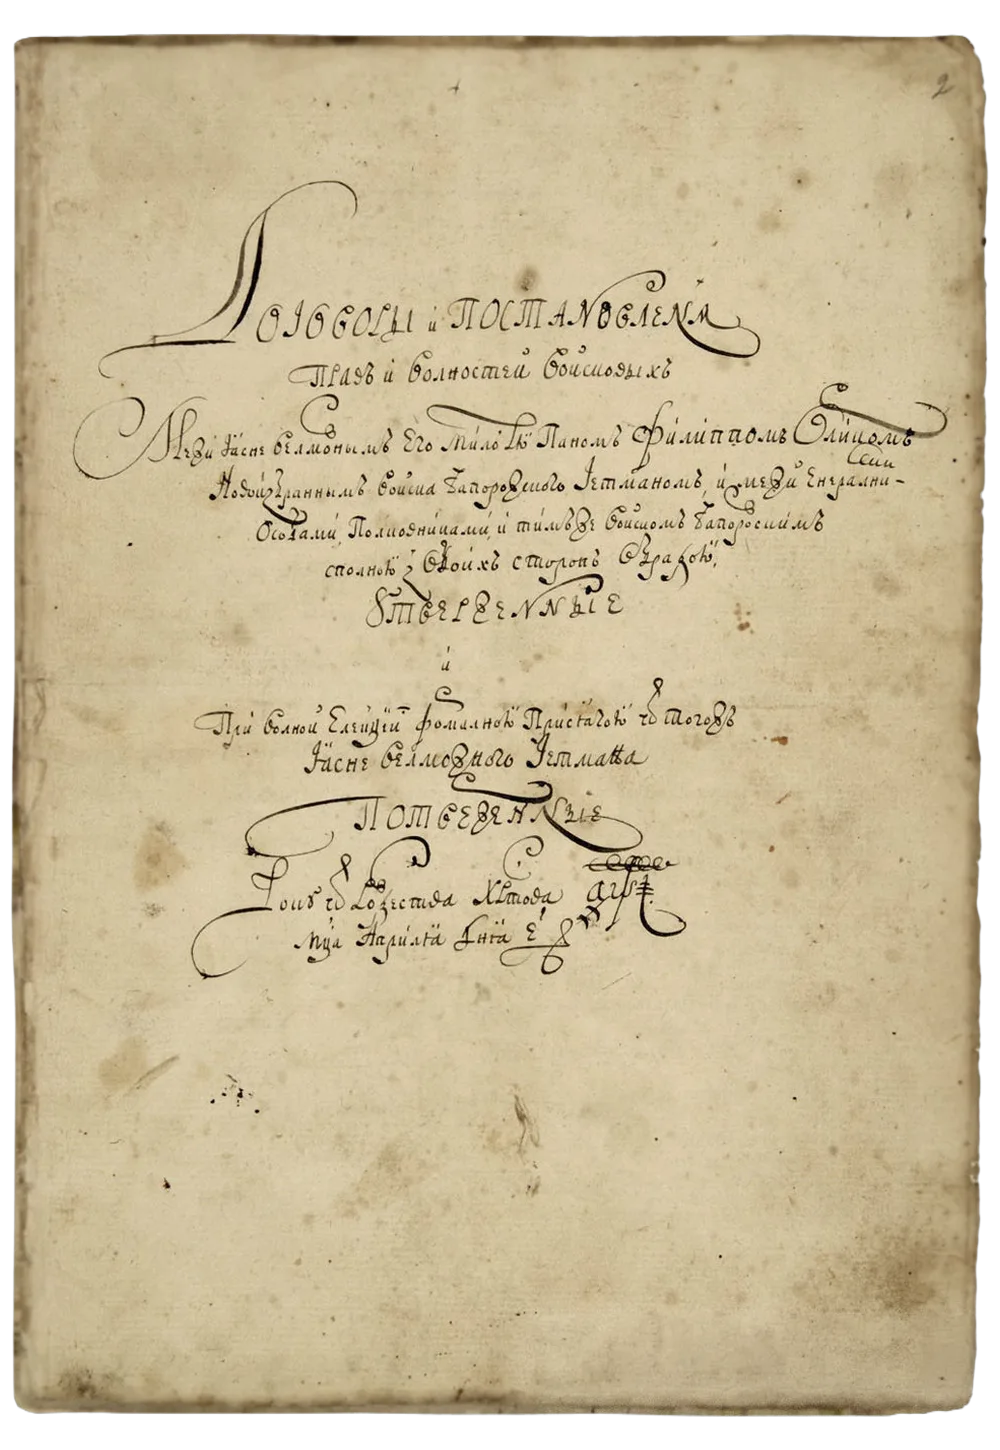 2
Договоры и Постановленѧ
Правъ и волностей войсковыхъ
Межи Ясне велможнымъ Его милостю Паномъ Филиппомъ Орликомъ
Новоизбраннымъ войска Запорожского Гетманомъ, и межи Енералними
Особами, Полковниками, и тимъже войскомъ Запорожскимъ
сполною з обоихъ сторонъ обрадою,
Утверженные
и
При волной Елекцїи формалною Присягою ѿ тогожъ
Ясне велможного Гетмана
Потверженные
Року ѿ Рожества Христова аѱі
мца Априля дня е